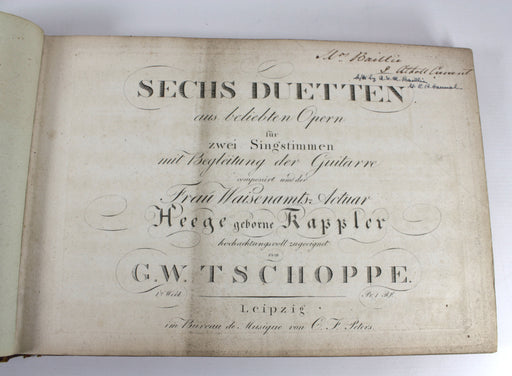 Mrs Baillie
2 Atholl Crescent
SECHS DUETTEN
aus beliebten Opern
für
zwei Singstimmen
mit Begleitung der Guitarre
componirt und der
Frau Waisenamts-Actuar
Heege geborne Kappler
hochachtungsvoll zugeeignet
von
G. W. TSCHOPPE.
Leipzig
im Bureau de Musique von C. F. Peters.